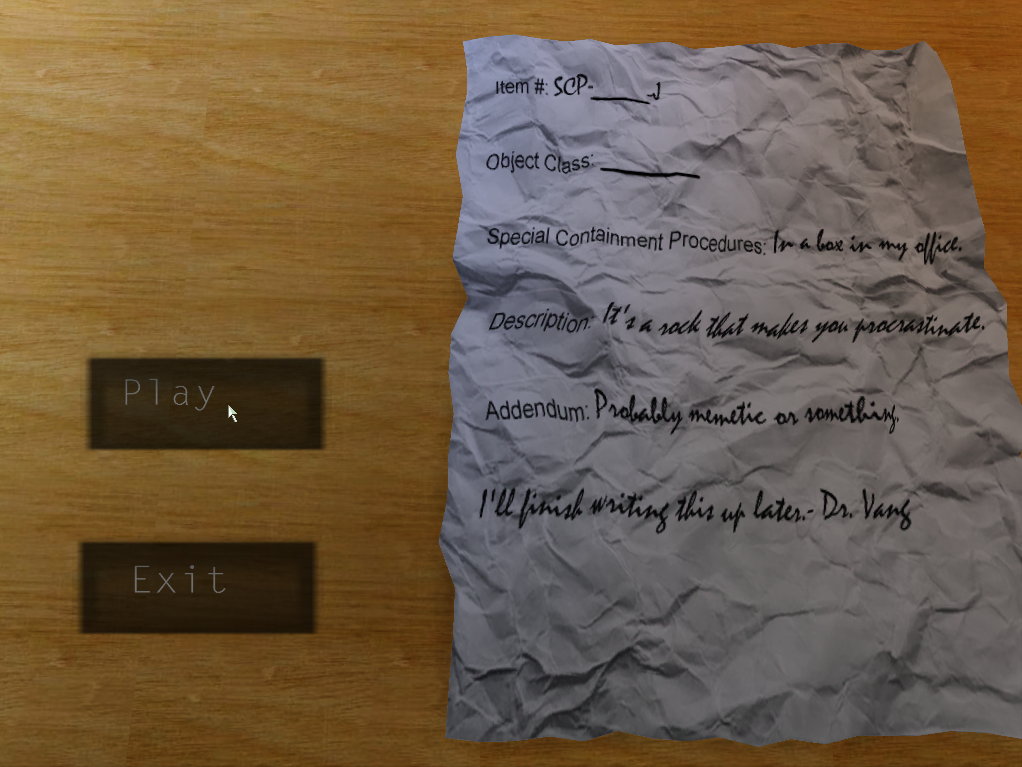 Item #: SCP-_____-J
Object Class: _______
Special Containment Procedures: In a box in my office.
Description: It's a rock that makes you procrastinate.
Addendum: Probably memetic or something.
I'll finish writing this up later.- Dr. Vang
Play
Exit